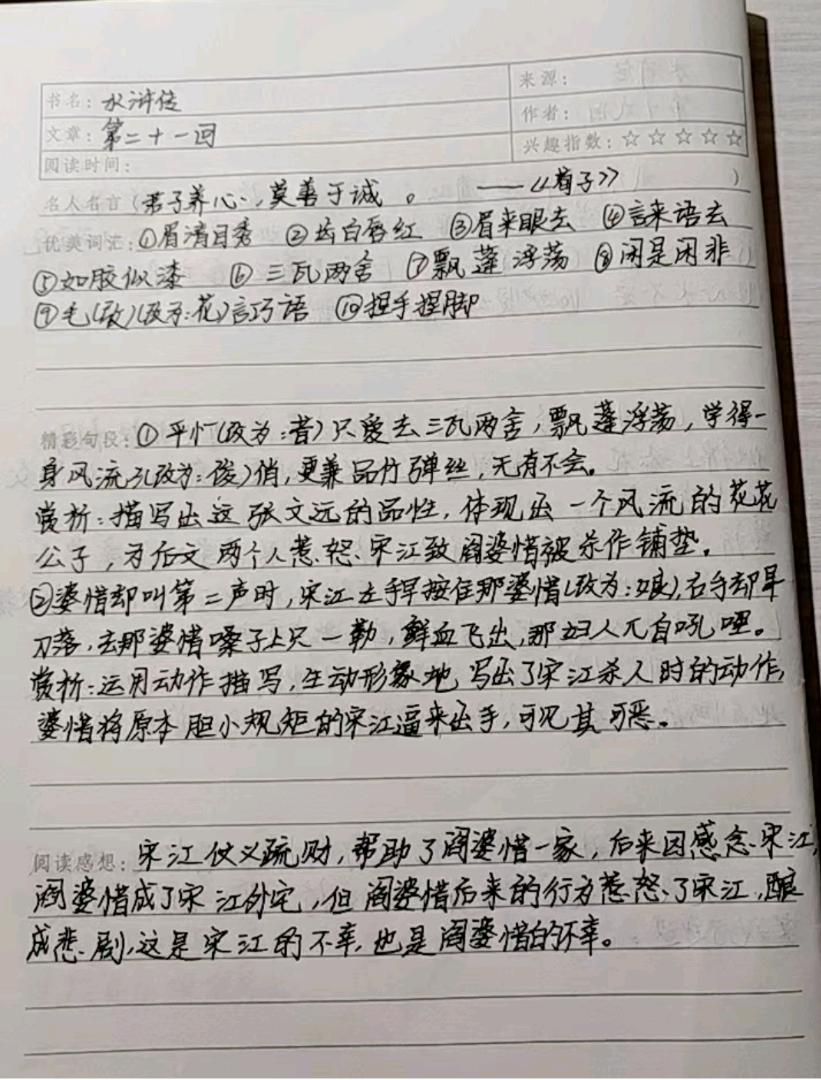 书名：水浒传
来源：
文章：第二十一回
作者：
阅读时间：
兴趣指数：☆☆☆☆☆
名人名言（君子养心，莫善于诚。 ——《荀子》）
优美词汇：①眉清目秀 ②齿白唇红 ③眉来眼去 ④言来语去
⑤如胶似漆 ⑥三瓦两舍 ⑦飘蓬浮荡 ⑧闲是闲非
⑨毛（改）（改为：花）言巧语 ⑩捏手捏脚
精彩句段：①平忄（改为：昔）只爱去三瓦两舍，飘蓬浮荡，学得一
身风流孔（改为：俊）俏，更兼品竹弹丝，无有不会。
赏析：描写出这张文远的品性，体现出一个风流的花花
公子，为后文两个人惹怒宋江致阎婆惜被杀作铺垫。
②婆惜却叫第二声时，宋江左手早按住那婆惜（改为：娘），右手却早
刀落，去那婆惜嗓子上只一勒，鲜血飞出，那妇人兀自吼哩。
赏析：运用动作描写，生动形象地写出了宋江杀人时的动作，
婆惜将原本胆小规矩的宋江逼来出手，可见其可恶。
阅读感想：宋江仗义疏财，帮助了阎婆惜一家，后来因感念宋江，
阎婆惜成了宋江外宅，但阎婆惜后来的行为惹怒了宋江，酿
成悲剧，这是宋江的不幸，也是阎婆惜的不幸。